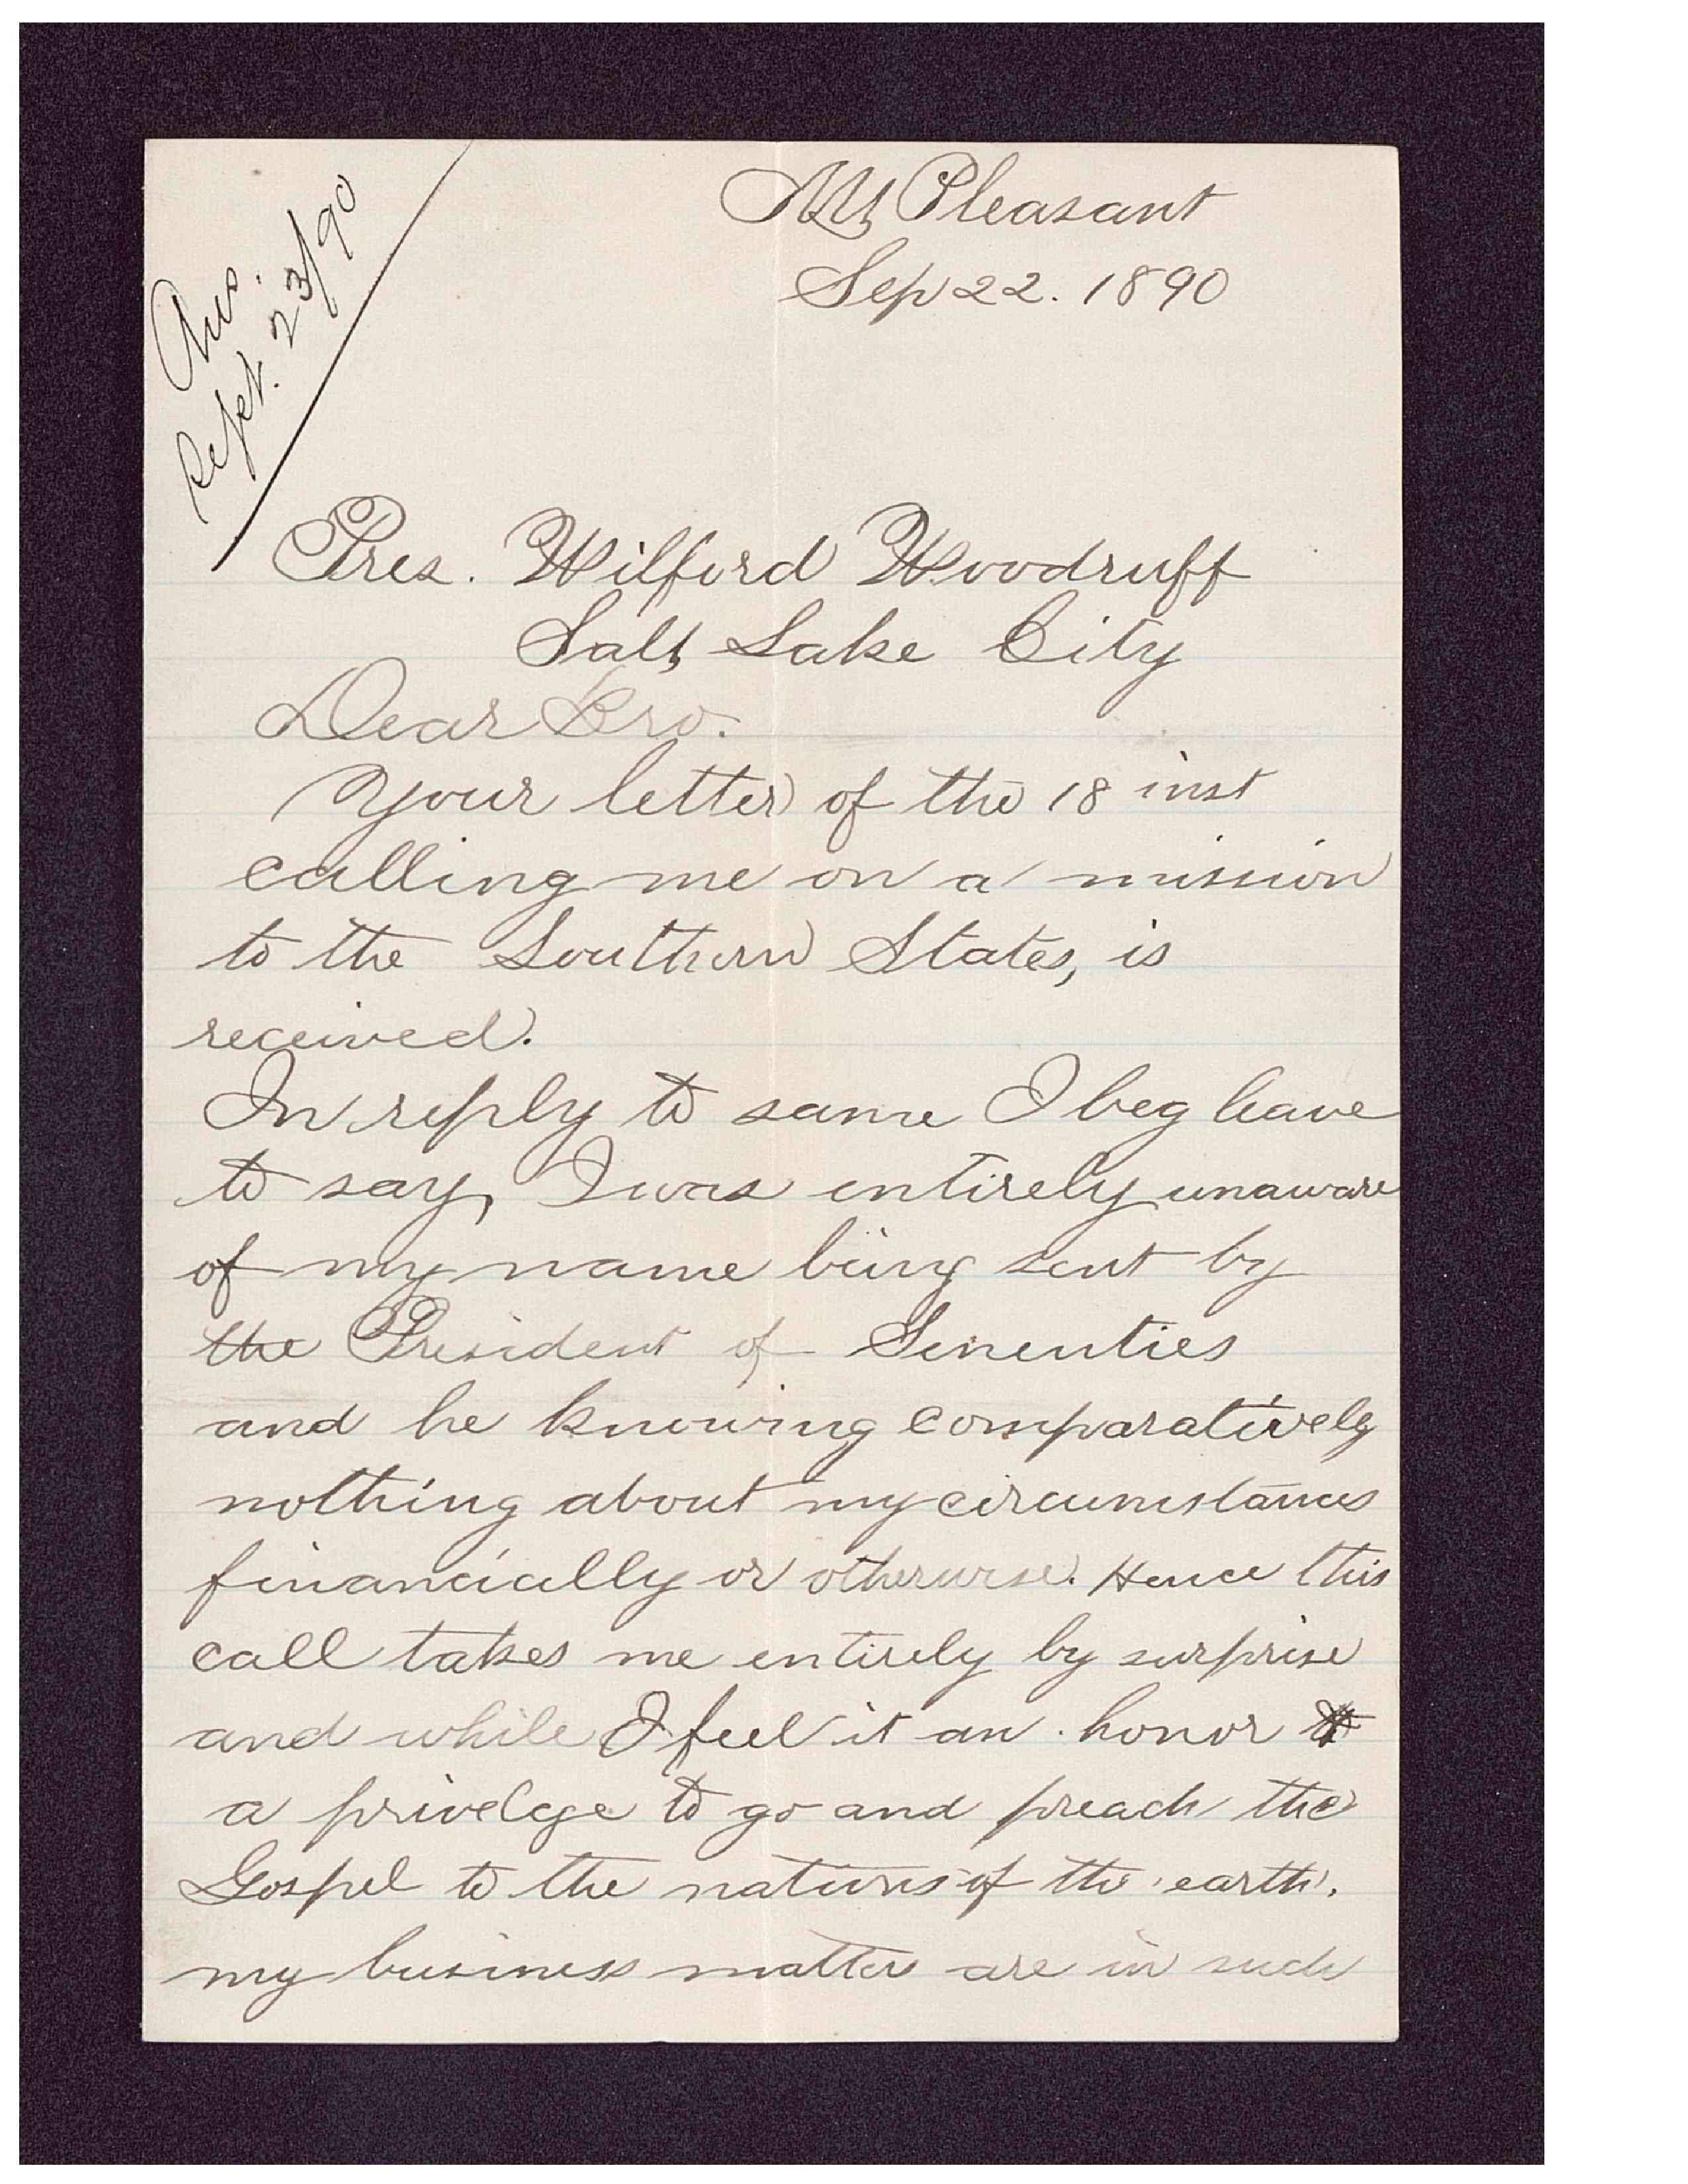 Ans.
Sept. 23/90
Mt Pleasant
Sep 22. 1890
Pres. Wilford Woodruff
Salt Lake City
Dear Bro.
Your letter of the 18 inst
calling me on a mission
to the Southern States, is
received.
In reply to same I beg leave
to say, I was entirely unaware
of my name being sent by
the President of Seventies
and he knowing comparatively
nothing about my circumstances
financially or otherwise. Hence this
call takes me entirely by surprise
and while I feel it an honor &
a privelege to go and preach the
Gospel to the nations of the earth.
my business matters are in such